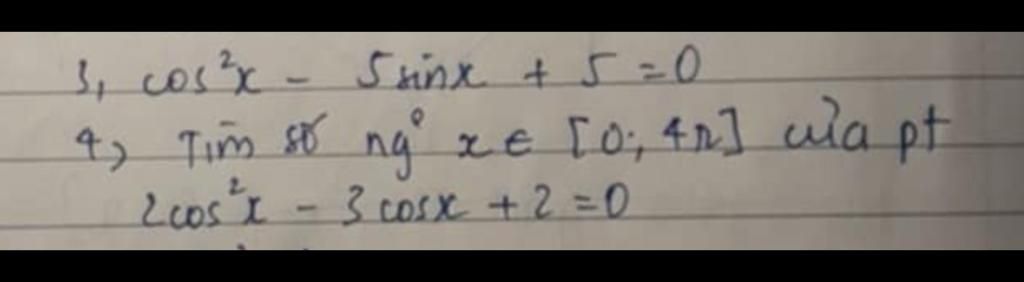 3, cos²x - 5 sinx + 5 = 0
4, Tìm số ng° x ∈ [0; 4π] của pt
2cos²x - 3 cosx + 2 = 0